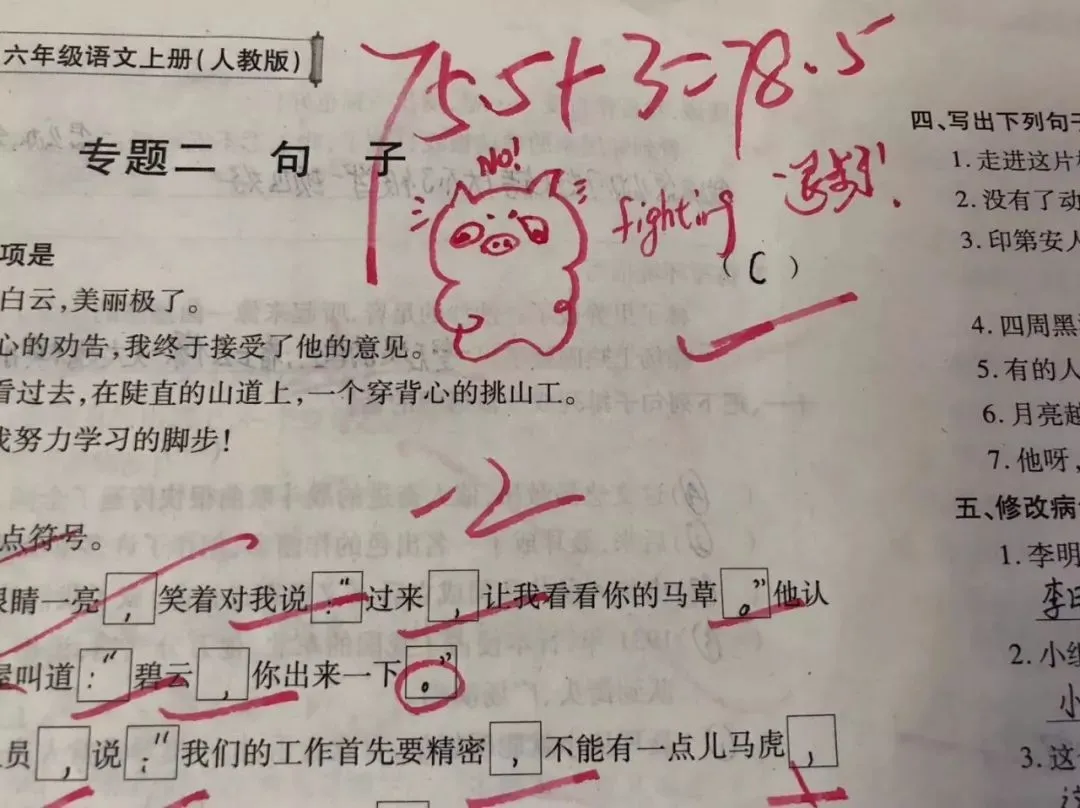 六年级语文上册(人教版)
75.5+3=78.5
专题二 句子
NO!
fighting
退步了!
(C)
项是
白云,美丽极了。
心的劝告,我终于接受了他的意见。
看过去,在陡直的山道上,一个穿背心的挑山工。
我努力学习的脚步!
-2
点符号。
眼睛一亮,笑着对我说:“过来,让我看看你的马草。”他认
屋叫道:“碧云,你出来一下。”
员,说:“我们的工作首先要精密,不能有一点儿马虎,
四、写出下列句子
1.走进这片
2.没有了动
3.印第安人
4.四周黑
5.有的人
6.月亮越
7.他呀,
五、修改病
1.李明
李明
2.小组
小
3.这
这